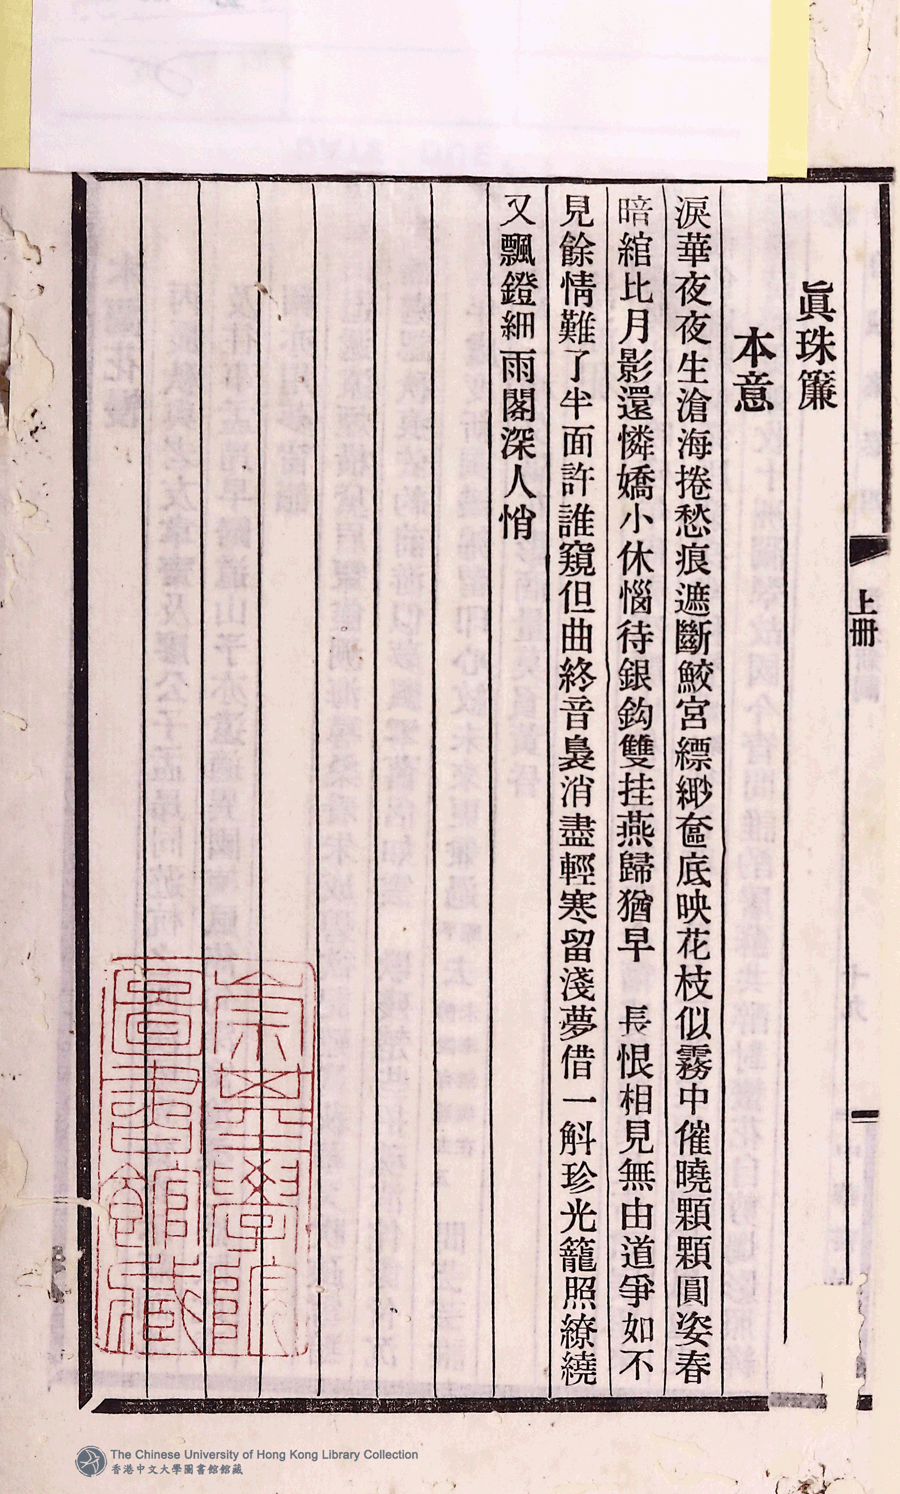 眞珠簾
本意
淚華夜夜生滄海捲愁痕遮斷鮫宮縹緲奩底映花枝似霧中催曉顆顆圓姿春
暗綰比月影還憐嬌小休惱待銀鈎雙挂燕歸猶早　長恨相見無由道爭如不
見餘情難了半面許誰窺但曲終音裊消盡輕寒留淺夢借一斛珍光籠照繚繞
又飄鐙細雨閣深人悄
上冊
崇基學院
圖書館藏
The Chinese University of Hong Kong Library Collection
香港中文大學圖書館館藏